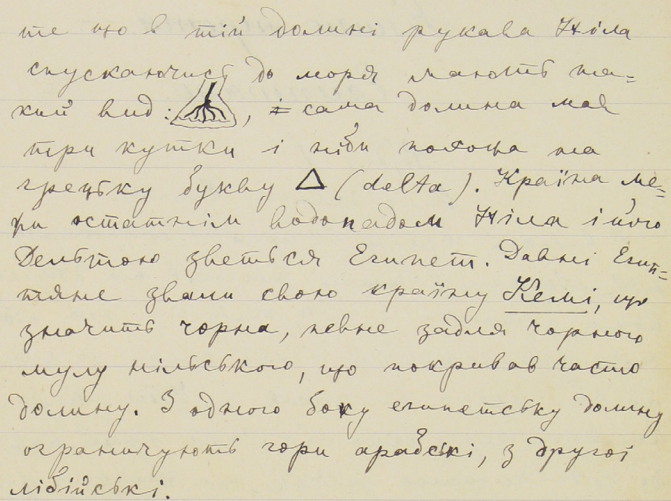 те що в тій долині рукава Ніла
спускаючись до моря мають та-
кий вид: , і сама долина має
три кутки і ніби похожа на
грецьку букву Δ (delta). Країна ме-
жи остатнім водопадом Ніла і його
Дельтою зветься Єгипет. Давні Єгип-
тяне звали свою країну Кемі, що
значить чорна, певне задля чорного
мулу нільського, що покривав часто
долину. З одного боку египетську долину
ограничують гори арабські, з другої
лібійські.